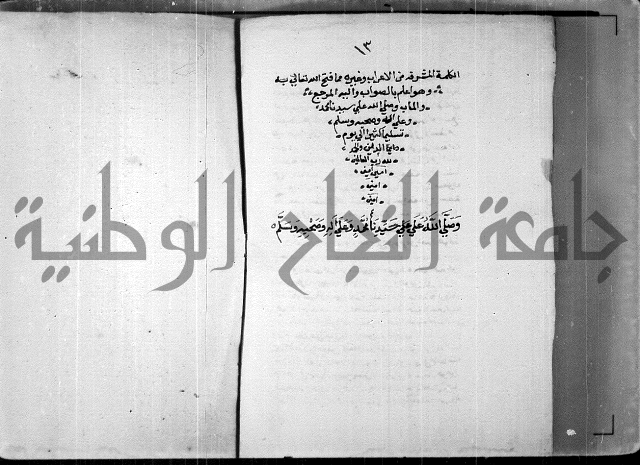 ١٣
الكلمة المشرفه من الاعراب وغيره مما فتح الله تعالي به
وهو اعلم بالصواب واليه المرجع
والماب وصلي الله علي سيدنا محمد
وعلي اله وصحبه وسلم
تسليما كثيرا الي يوم
الدين والحمد
لله رب العالمين
امين امين
امين
امين
وَصَلَّي اللَّهُ عَلَي سَيِّدِنَا مُحَمَّدٍ وَعَلَي اَلِهِ وَصَحْبِهِ وَسَلَّمْ
جامعة النجاح الوطنية